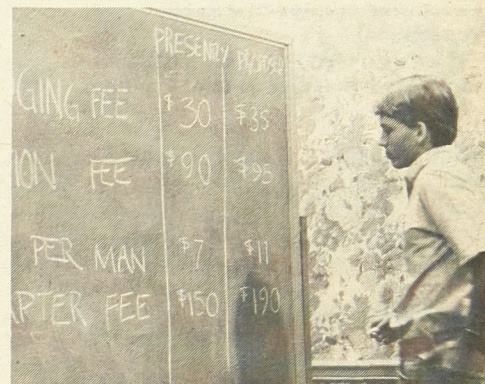 PRESENTLY PROPOSED
GING FEE $30 $35
ION FEE $90 $95
PER MAN $7 $11
APTER FEE $150 $190